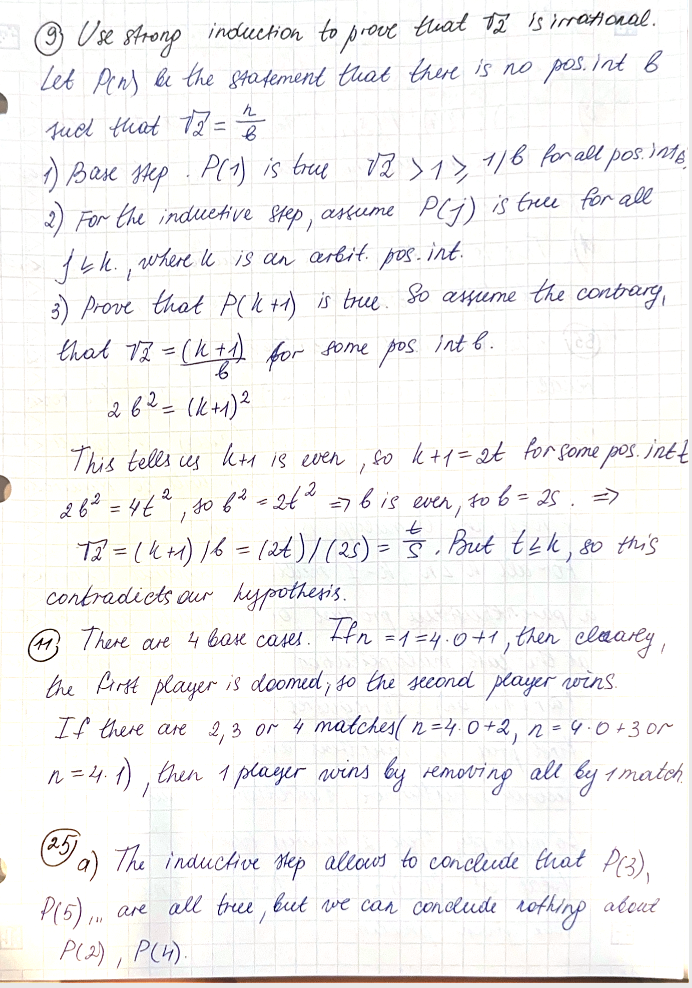 9) Use strong induction to prove that √2 is irrational.
Let P(n) be the statement that there is no pos. int b
such that √2 = n/b
1) Base step. P(1) is true √2 > 1 ≥ 1/b for all pos. int b.
2) For the inductive step, assume P(j) is true for all
j ≤ k., where k is an arbit. pos. int.
3) Prove that P(k+1) is true. So assume the contrary,
that √2 = (k+1)/b for some pos. int b.
2b² = (k+1)²
This tells us k+1 is even, so k+1 = 2t for some pos. int t
2b² = 4t², so b² = 2t² => b is even, so b = 2s. =>
√2 = (k+1)/b = (2t)/(2s) = t/s. But t ≤ k, so this
contradicts our hypothesis.
11) There are 4 base cases. If n = 1 = 4·0+1, then clearly,
the first player is doomed, so the second player wins.
If there are 2, 3 or 4 matches (n = 4·0+2, n = 4·0+3 or
n = 4·1), then 1 player wins by removing all by 1 match.
25) a) The inductive step allows to conclude that P(3),
P(5),... are all true, but we can conclude nothing about
P(2), P(4).